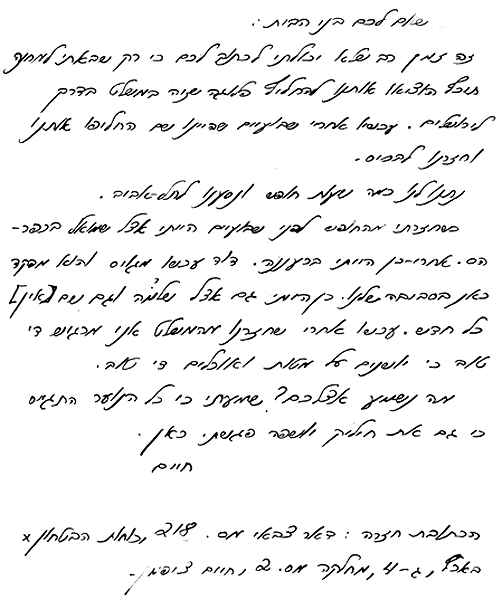 שלום לכם בני הבית :.
זה זמן רב שלא יכולתי לכתוב לכם כי רק שבאתי למחנה
תיכף הוציאו אותנו להחליף פלוגה שניה במשלט בדרך
לירושלים. עכשו אחרי שבועיים שהיינו שם החליפו אותנו
וחזרנו לבסיס.
נתנו לנו כמה שעות חופש ונסענו לתל-אביב.
כשחזרתי מהחופש לפני שבועיים הייתי אצל שמואל בכפר-
הס. אחרי-כן הייתי ברעננה. דוד עכשו מגויס והוא מפקד
כאן בסביבה שלנו. כן הייתי גם אצל שלמה וגם שם [אין]
כל חדש. עכשו אחרי שחזרנו מהמשלט אני מרגיש די
טוב כי ישנים על מטות ואוכלים די טוב.
מה נשמע אצלכם? שמעתי כי כל הנוער התגיס
כי גם את חיליק יושפה פגשתי כאן.
חיים
הכתובת חזרה : דאר צבאי מס. 218, כוחות הבטחון x
בארץ, ג-4, מחלקה מס. 2, חיים ציפמן-